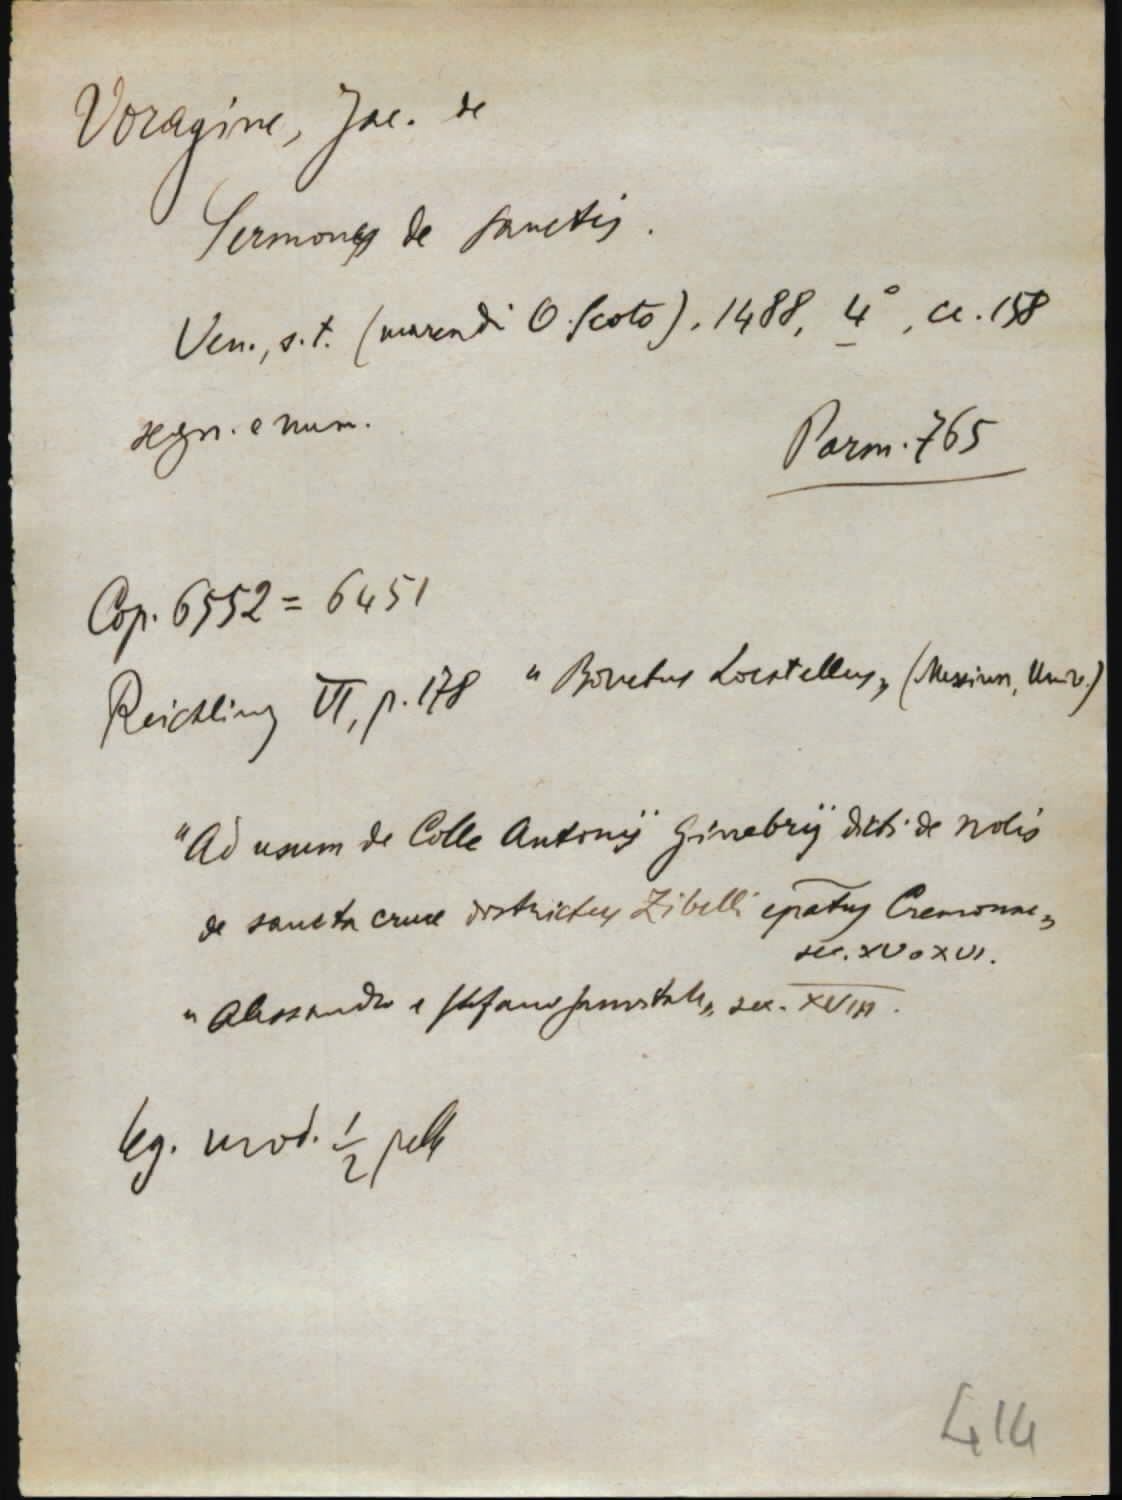 Voragine, Jac. de
Sermones de sanctis.
Ven., s.t. (marca di O. Scoto), 1488, 4°, cc. 158
segn. e num.
Parm. 765
Cop. 6552 = 6451
Reichling VI, p. 178 "Bonetus Locatellus" (Messina, Univ.)
"Ad usum de Colle Antonij Ginebrij dicti de nolis
de sancta cruce districtus Zibelli epatus Cremonae"
sec. XV o XVI.
"Alessandro e Stefano" sec. XVIII.
leg. mod. 1/2 pelle
414